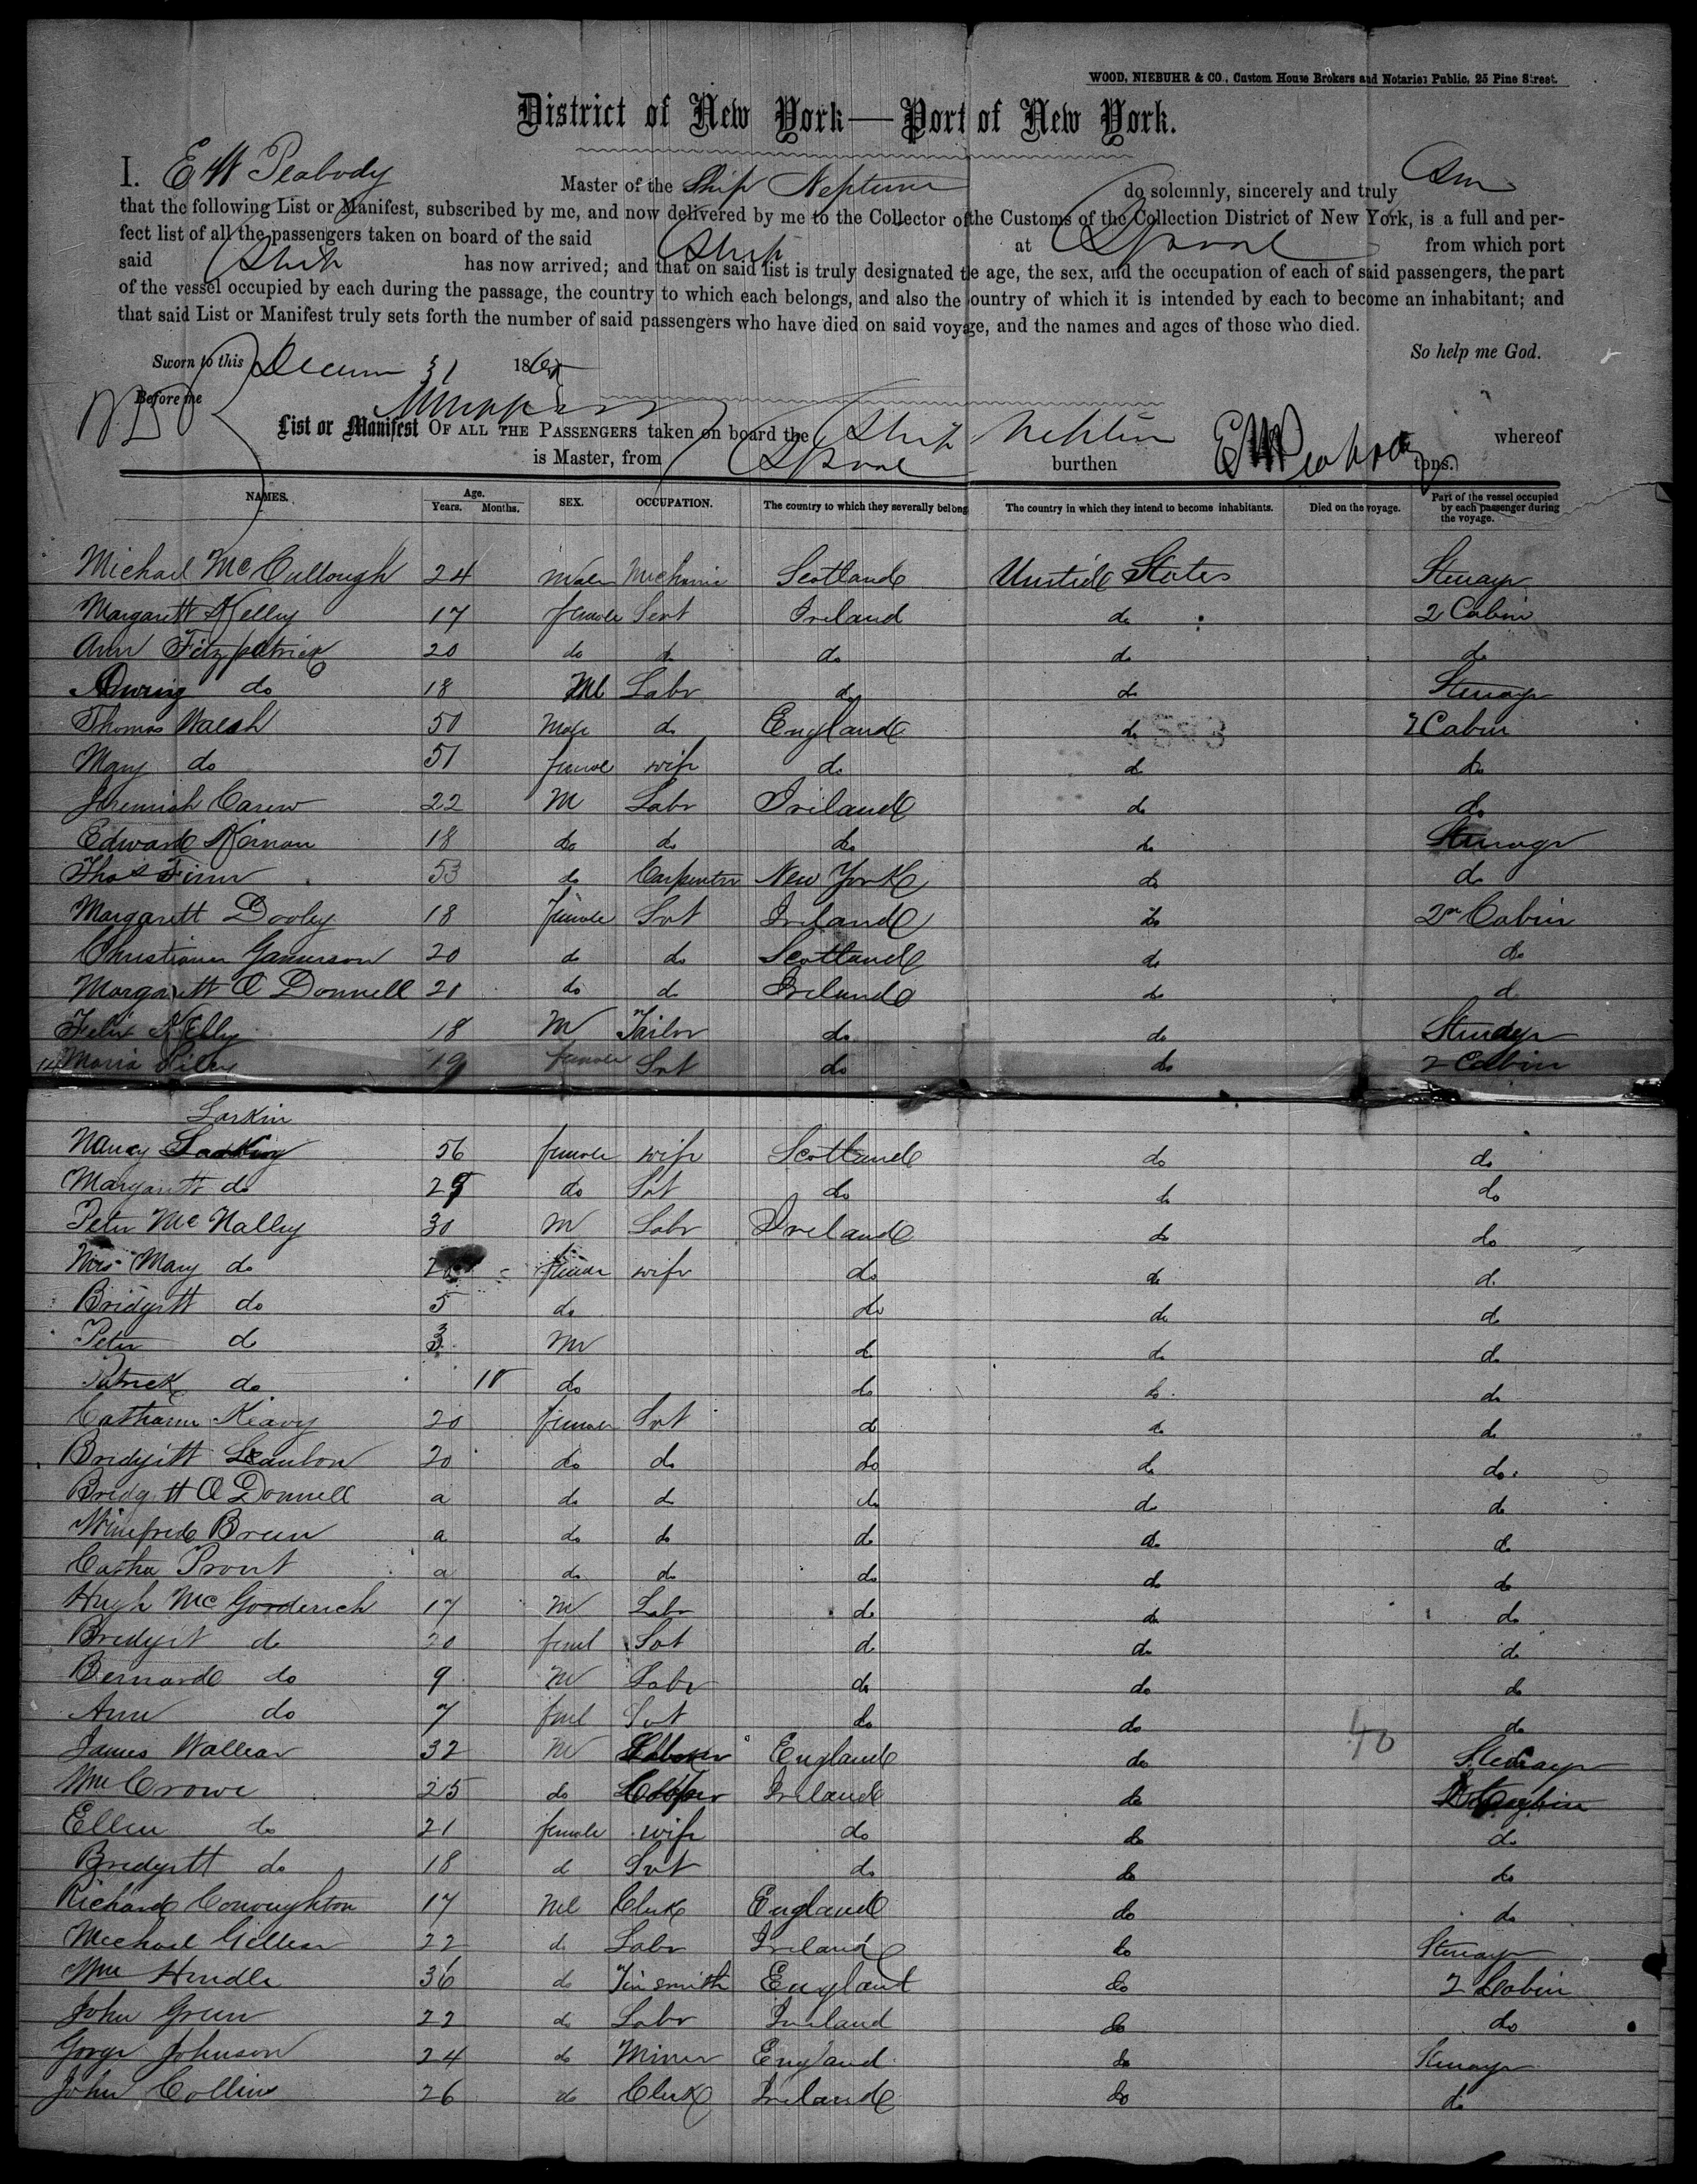 WOOD, NIEBUHR & CO., Custom House Brokers and Notaries Public, 25 Pine Street.
District of New York—Port of New York.
I. E W Peabody Master of the Ship Neptune do solemnly, sincerely and truly
that the following List or Manifest, subscribed by me, and now delivered by me to the Collector of the Customs of the Collection District of New York, is a full and per-
fect list of all the passengers taken on board of the said Ship at Lpool from which port
said Ship has now arrived; and that on said list is truly designated the age, the sex, and the occupation of each of said passengers, the part
of the vessel occupied by each during the passage, the country to which each belongs, and also the ountry of which it is intended by each to become an inhabitant; and
that said List or Manifest truly sets forth the number of said passengers who have died on said voyage, and the names and ages of those who died.
So help me God.
Sworn to this 31 186
Before me
List or Manifest OF ALL THE PASSENGERS taken on board the Ship whereof
E W Peabody
is Master, from Lpool burthen tons.
NAMES. Age. Years. Months. SEX. OCCUPATION. The country to which they severally belong The country in which they intend to become inhabitants. Died on the voyage. Part of the vessel occupied by each passenger during the voyage.
Michael McCullough 24 male Mechanic Scotland United States Steerage
Margarett Kelley 17 female Servt Ireland do 2 Cabin
Ann Fitzpatrick 20 do do do do do
do 18 Ml Labr do do Steerage
Thomas Walsh 50 Male do England do 2 Cabin
Mary do 51 female wife do do do
Jeremiah Carew 22 M Labr Ireland do do
Edward Kernan 18 do do do do Steerage
Thos Finn 53 do Carpenter New York do do
Margarett Dooley 18 female Svt Ireland do 2n Cabin
20 do do Scotland do do
Margarett O Donnell 21 do do Ireland do d
Felix Kelly 18 M Tailor do do Steerage
14 Maria Riley 19 female Svt do do 2 Cabin
Larkin
Nancy 56 female wife Scotland do do
Margarett do 29 do Svt do do do
Peter McNalley 30 M Labr Ireland do do
Mrs Mary do female wife do do d.
Bridgett do 5 do do do do
Peter do 3 M do do do
Patrick do 10 do do do do
Catharin Keavy 20 female Svt do do do
Bridgitt Scanlon 20 do do do do do
Bridgtt O Donnell a do do do do do
Winefred Breen a do do do do do
Catha Prout a do do do do do
Hugh Mc Gorderich 17 M Labr do do do
Bredgit do 20 feml Svt do do do
Bernard do 9 M Labr do do do
Ann do 7 feml Svt do do do
40
James Wallear 32 M England do Steerage
Wm Crowe 25 do Ireland do
Ellen do 21 female wife do do do
Bredgett do 18 do Svt do do do
Richard Conoughton 17 Ml Clerk England do do
Mechael Gillean 22 do Labr Ireland do Steerage
Wm Hindle 36 do Tinsmith Englant do 2 Cabin
John Green 22 do Labr Ireland do do
Gorge Johnson 24 do Miner England do Steerage
John Collins 26 do Clerk Ireland do do